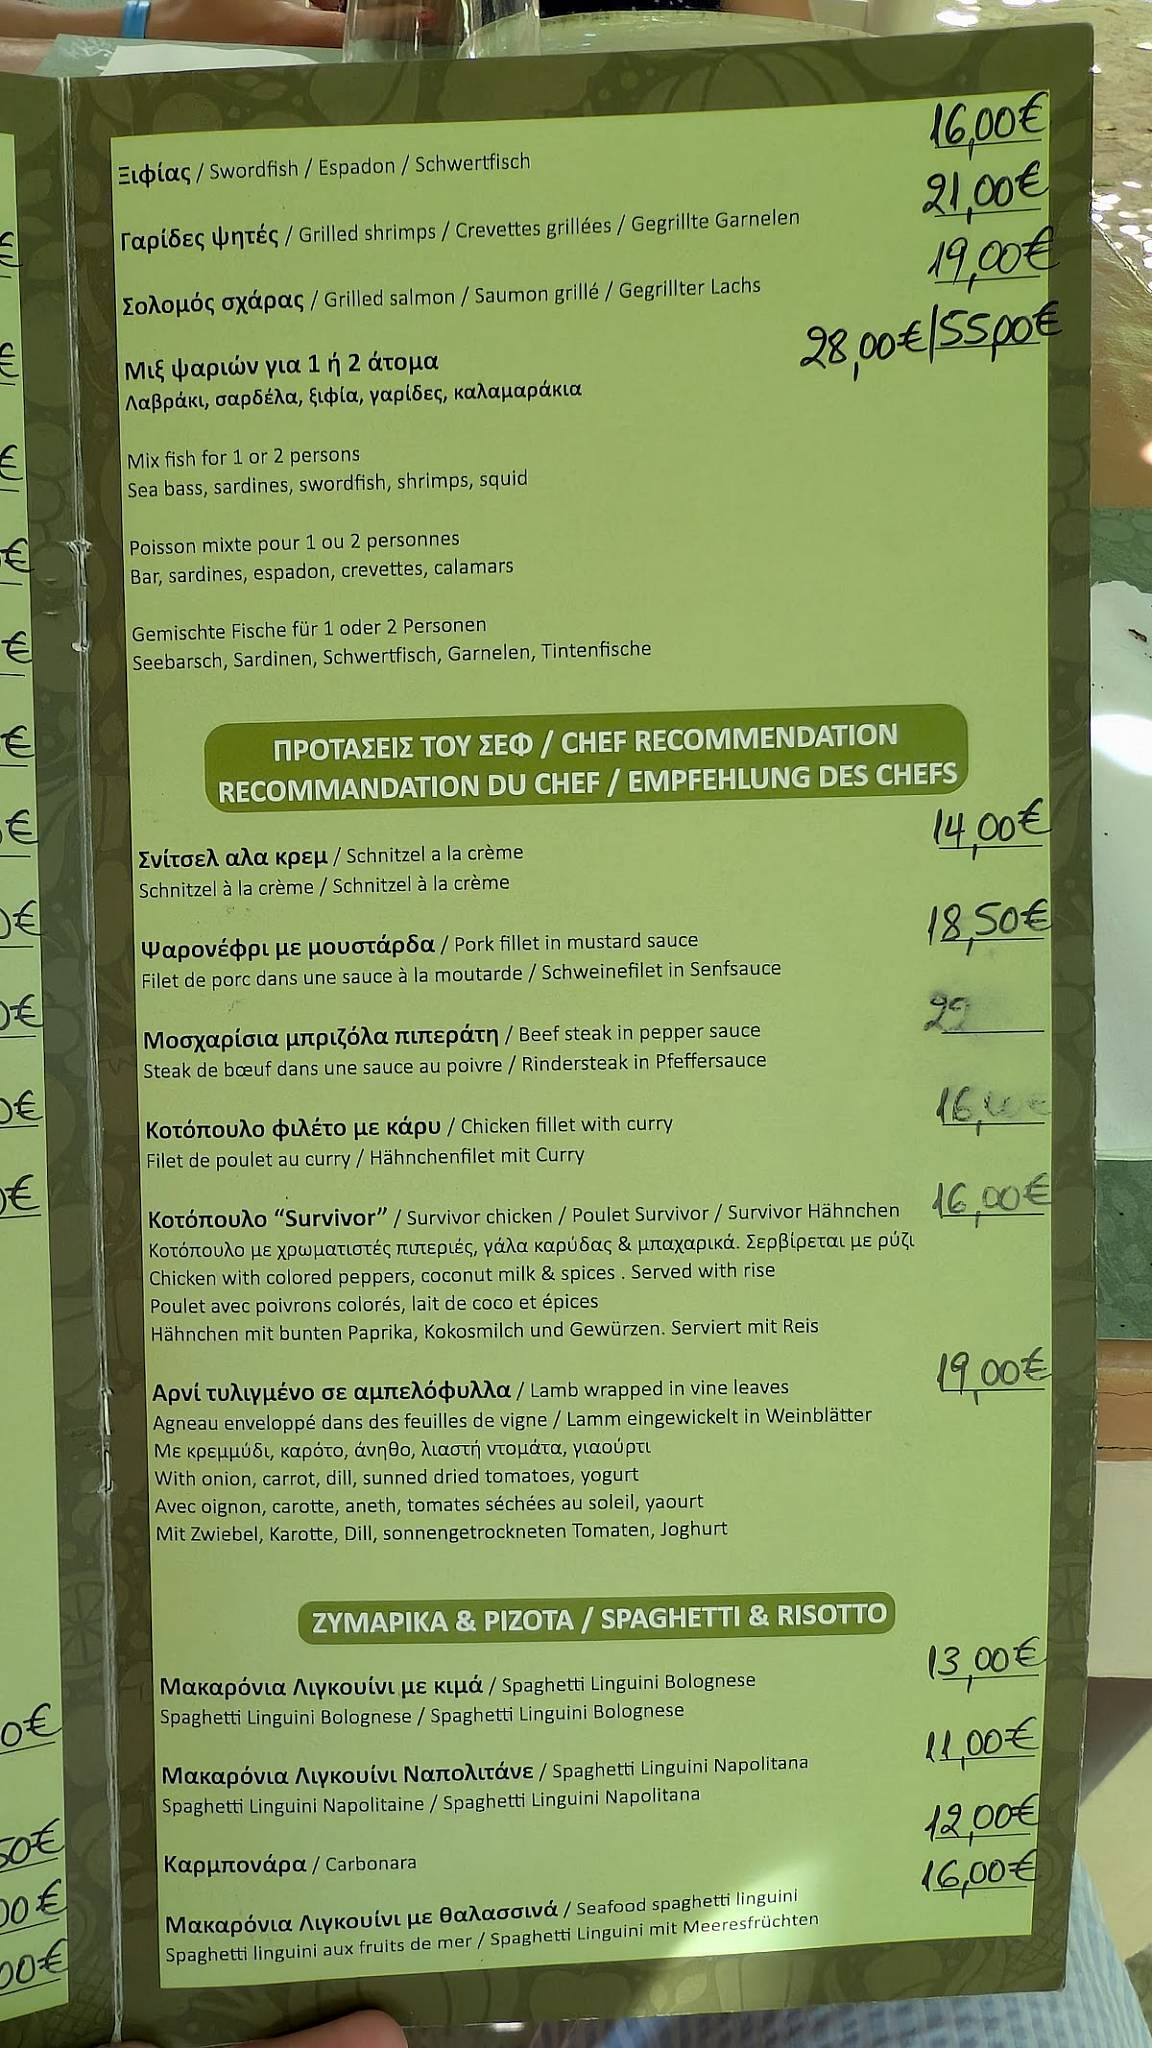 Ξιφίας / Swordfish / Espadon / Schwertfisch 16,00€
Γαρίδες ψητές / Grilled shrimps / Crevettes grillées / Gegrillte Garnelen 21,00€
Σολομός σχάρας / Grilled salmon / Saumon grillé / Gegrillter Lachs 19,00€
Μιξ ψαριών για 1 ή 2 άτομα 28,00€/55,00€
Λαβράκι, σαρδέλα, ξιφία, γαρίδες, καλαμαράκια
Mix fish for 1 or 2 persons
Sea bass, sardines, swordfish, shrimps, squid
Poisson mixte pour 1 ou 2 personnes
Bar, sardines, espadon, crevettes, calamars
Gemischte Fische für 1 oder 2 Personen
Seebarsch, Sardinen, Schwertfisch, Garnelen, Tintenfische
ΠΡΟΤΑΣΕΙΣ ΤΟΥ ΣΕΦ / CHEF RECOMMENDATION
RECOMMANDATION DU CHEF / EMPFEHLUNG DES CHEFS
Σνίτσελ αλα κρεμ / Schnitzel a la crème 14,00€
Schnitzel à la crème / Schnitzel à la crème
Ψαρονέφρι με μουστάρδα / Pork fillet in mustard sauce 18,50€
Filet de porc dans une sauce à la moutarde / Schweinefilet in Senfsauce
Μοσχαρίσια μπριζόλα πιπεράτη / Beef steak in pepper sauce
Steak de bœuf dans une sauce au poivre / Rindersteak in Pfeffersauce
Κοτόπουλο φιλέτο με κάρυ / Chicken fillet with curry
Filet de poulet au curry / Hähnchenfilet mit Curry
Κοτόπουλο “Survivor” / Survivor chicken / Poulet Survivor / Survivor Hähnchen 16,00€
Κοτόπουλο με χρωματιστές πιπεριές, γάλα καρύδας & μπαχαρικά. Σερβίρεται με ρύζι
Chicken with colored peppers, coconut milk & spices . Served with rise
Poulet avec poivrons colorés, lait de coco et épices
Hähnchen mit bunten Paprika, Kokosmilch und Gewürzen. Serviert mit Reis
Αρνί τυλιγμένο σε αμπελόφυλλα / Lamb wrapped in vine leaves 19,00€
Agneau enveloppé dans des feuilles de vigne / Lamm eingewickelt in Weinblätter
Με κρεμμύδι, καρότο, άνηθο, λιαστή ντομάτα, γιαούρτι
With onion, carrot, dill, sunned dried tomatoes, yogurt
Avec oignon, carotte, aneth, tomates séchées au soleil, yaourt
Mit Zwiebel, Karotte, Dill, sonnengetrockneten Tomaten, Joghurt
ΖΥΜΑΡΙΚΑ & ΡΙΖΟΤΑ / SPAGHETTI & RISOTTO
Μακαρόνια Λιγκουίνι με κιμά / Spaghetti Linguini Bolognese 13,00€
Spaghetti Linguini Bolognese / Spaghetti Linguini Bolognese
Μακαρόνια Λιγκουίνι Ναπολιτάνε / Spaghetti Linguini Napolitana 11,00€
Spaghetti Linguini Napolitaine / Spaghetti Linguini Napolitana
Καρμπονάρα / Carbonara 12,00€
Μακαρόνια Λιγκουίνι με θαλασσινά / Seafood spaghetti linguini 16,00€
Spaghetti linguini aux fruits de mer / Spaghetti Linguini mit Meeresfrüchten